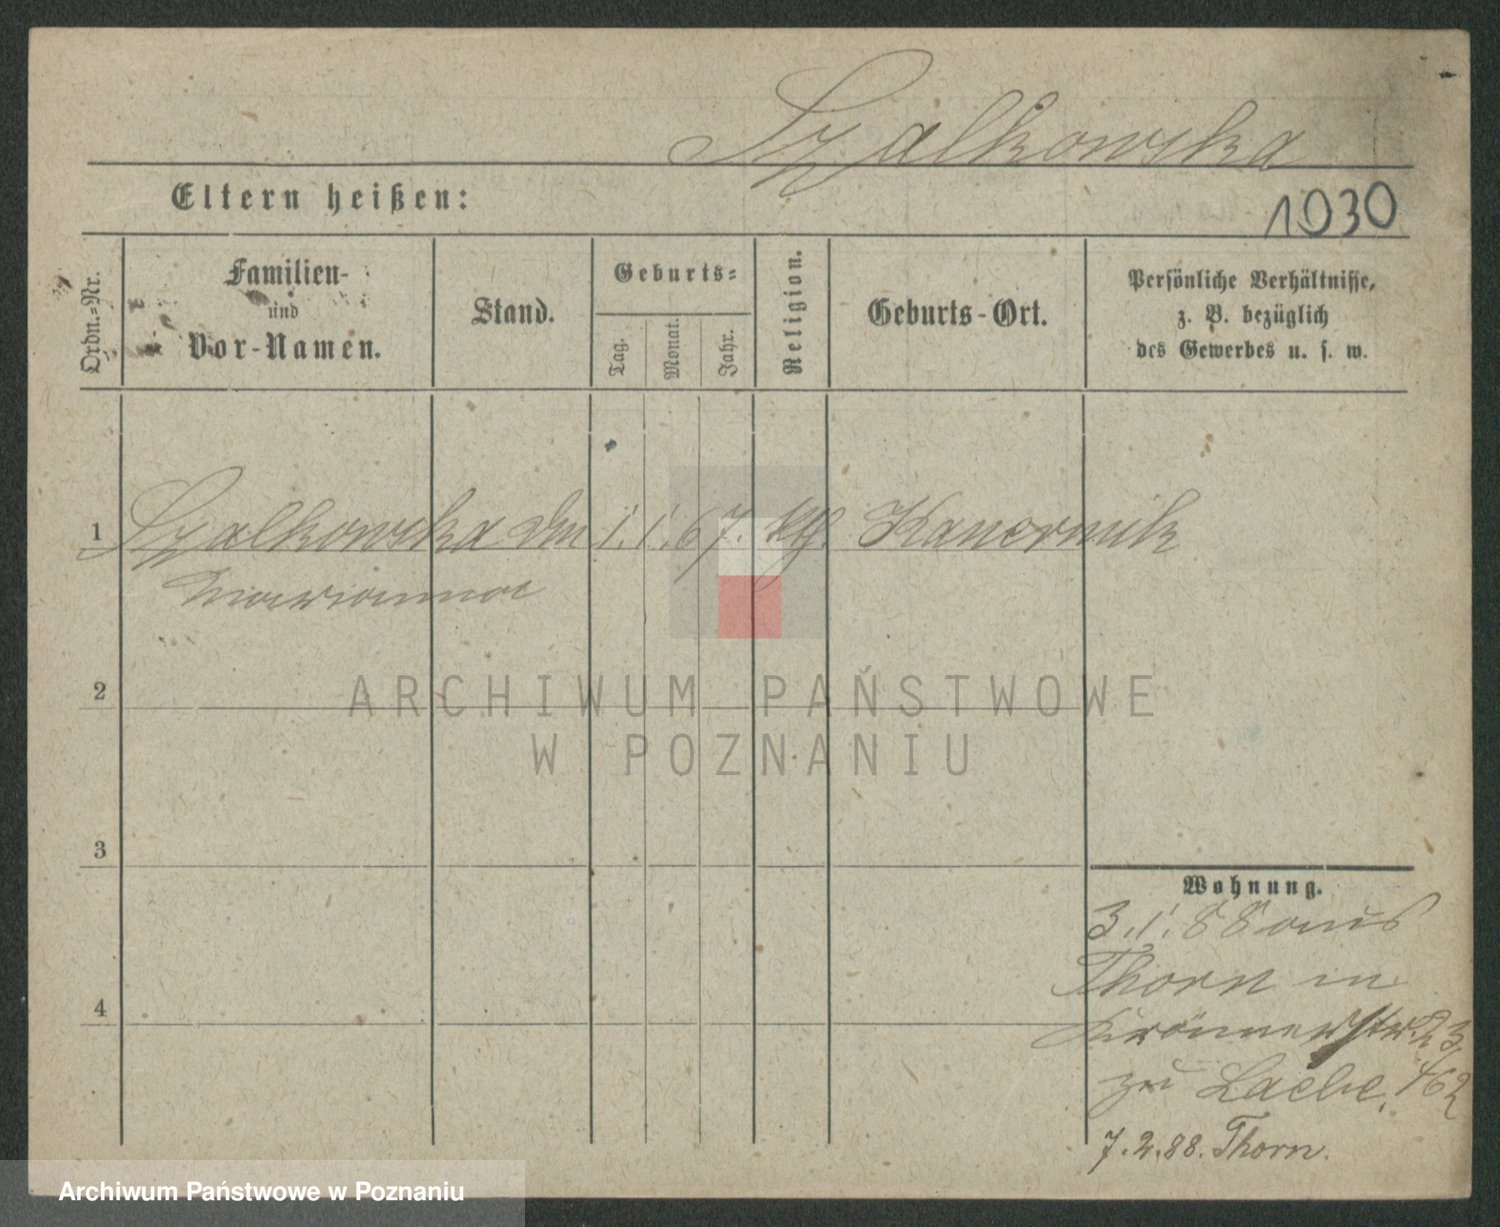 Szalkowska
Eltern heißen:
1030
Ordn.-Nr.
Familien-
und
Vor-Namen.
Stand.
Geburts-
Tag.
Monat.
Jahr.
Religion.
Geburts-Ort.
Persönliche Verhältnisse,
z. B. bezüglich
des Gewerbes u. s. w.
1 Szalkowska 1. 1. 67. kth.
Marianna
2
ARCHIWUM PAŃSTWOWE
W POZNANIU
3
Wohnung.
3. 1. 88 aus
Thorn in
23
zu
4
7. 2. 88. Thorn.
Archiwum Państwowe w Poznaniu